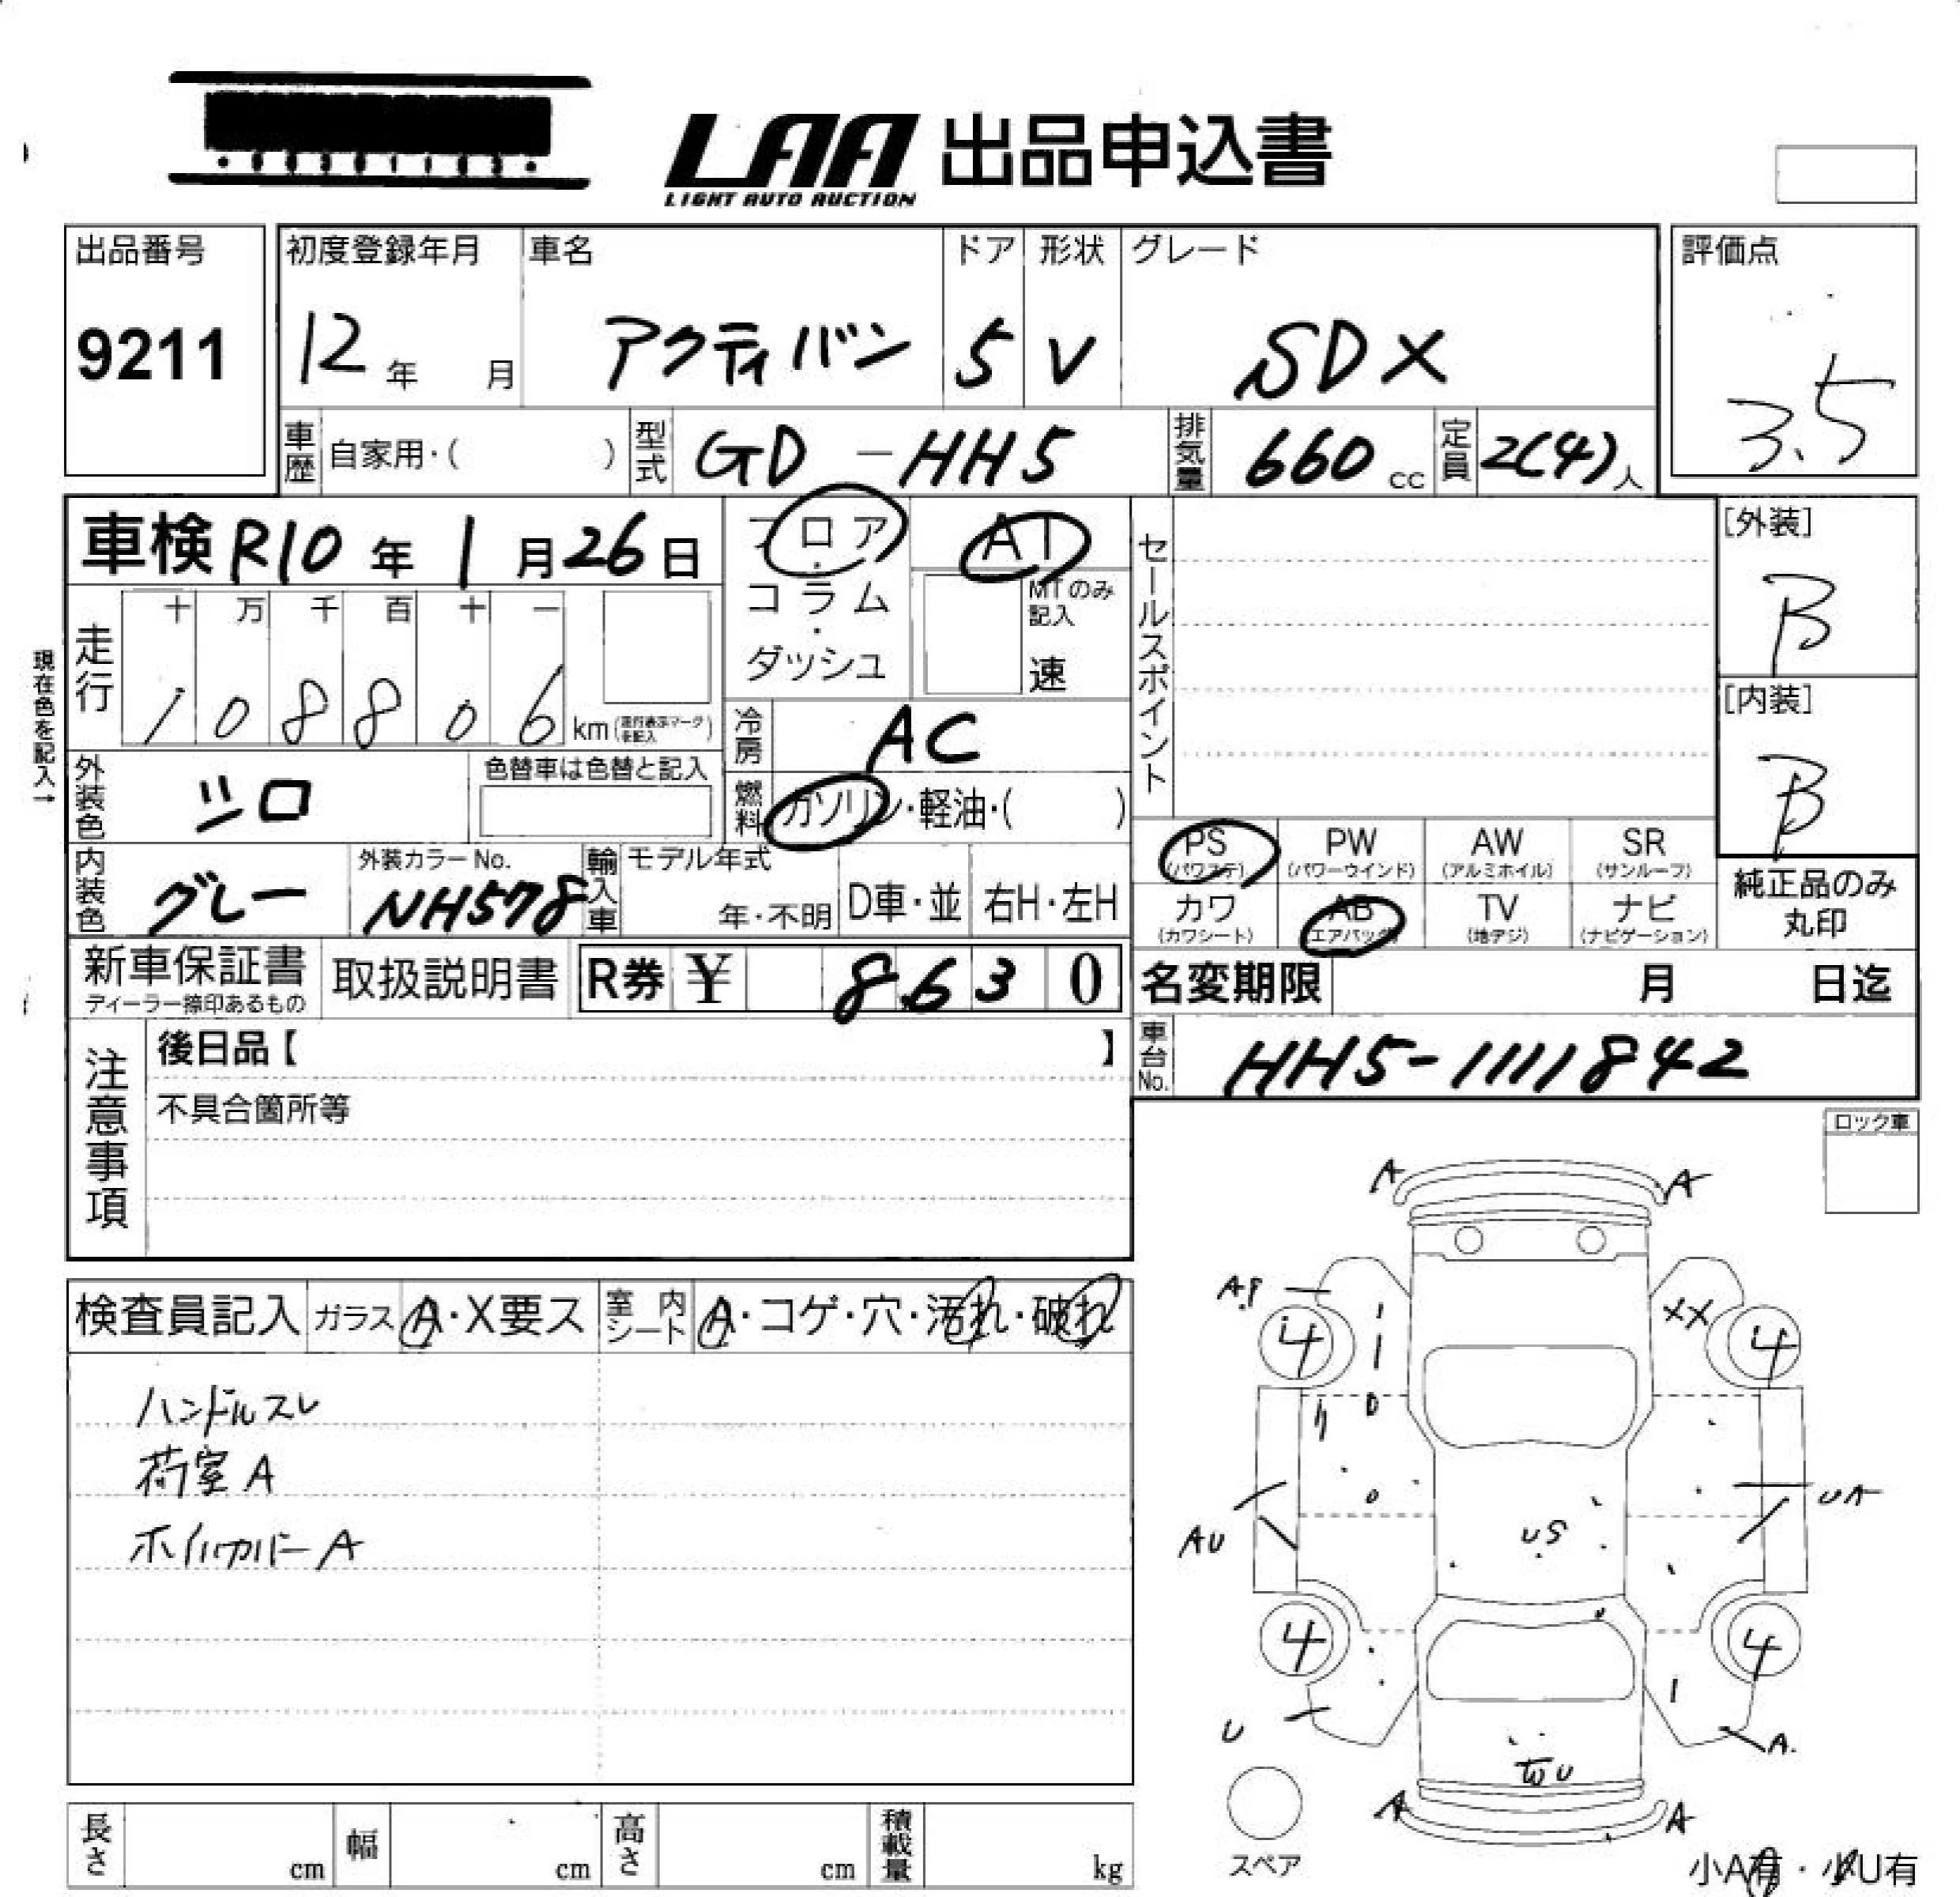 LAA 出品申込書
LIGHT AUTO AUCTION
出品番号
9211
初度登録年月
12 年 月
車名
アクティバン
ドア
5
形状
V
グレード
SDX
評価点
3.5
車歴 自家用・( )
型式 GD-HH5
排気量 660 cc
定員 2(4)人
車検 R10 年 1 月 26 日
フロア・コラム・ダッシュ
AT
MTのみ記入
速
セールスポイント
[外装]
B
[内装]
B
現在色を記入→
走行
十 万 千 百 十 一
1 0 8 8 0 6 km(走行表示マークを記入)
冷房 AC
外装色 シロ
色替車は色替と記入
燃料 ガソリン・軽油・( )
内装色 グレー
外装カラーNo.
NH578
輸入車 モデル年式
年・不明
D車・並 右H・左H
PS PW AW SR
(パワステ) (パワーウインド) (アルミホイル) (サンルーフ)
カワ AB TV ナビ
(カワシート) (エアバッグ) (地デジ) (ナビゲーション)
純正品のみ
丸印
新車保証書
ディーラー捺印あるもの
取扱説明書
R券 ¥ 8630
名変期限 月 日迄
注意事項
後日品【 】
不具合箇所等
車台No. HH5-1111842
ロック車
検査員記入 ガラス A・X要ス 室内シート A・コゲ・穴・汚れ・破れ
ハンドルスレ
荷室 A
ホイルカバー A
A A
A.P XX
4 4
AU UA
US
4 4
U A.
U
A A
スペア
小A有・小U有
長さ cm 幅 cm 高さ cm 積載量 kg